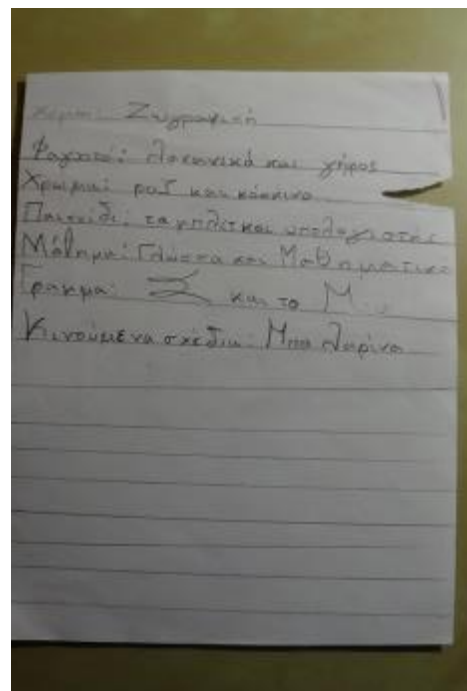 Χόμπι: Ζωγραφική
Φαγητό: και γύρος
Χρώμα: ροζ και κόκκινο
Παιχνίδι: ταμπλετ και υπολογιστής
Μάθημα: Γλώσσα και Μαθηματικά
Γραμμα: Ξ και το Μ
Κινούμενα σχέδια: Μπαλαρίνα